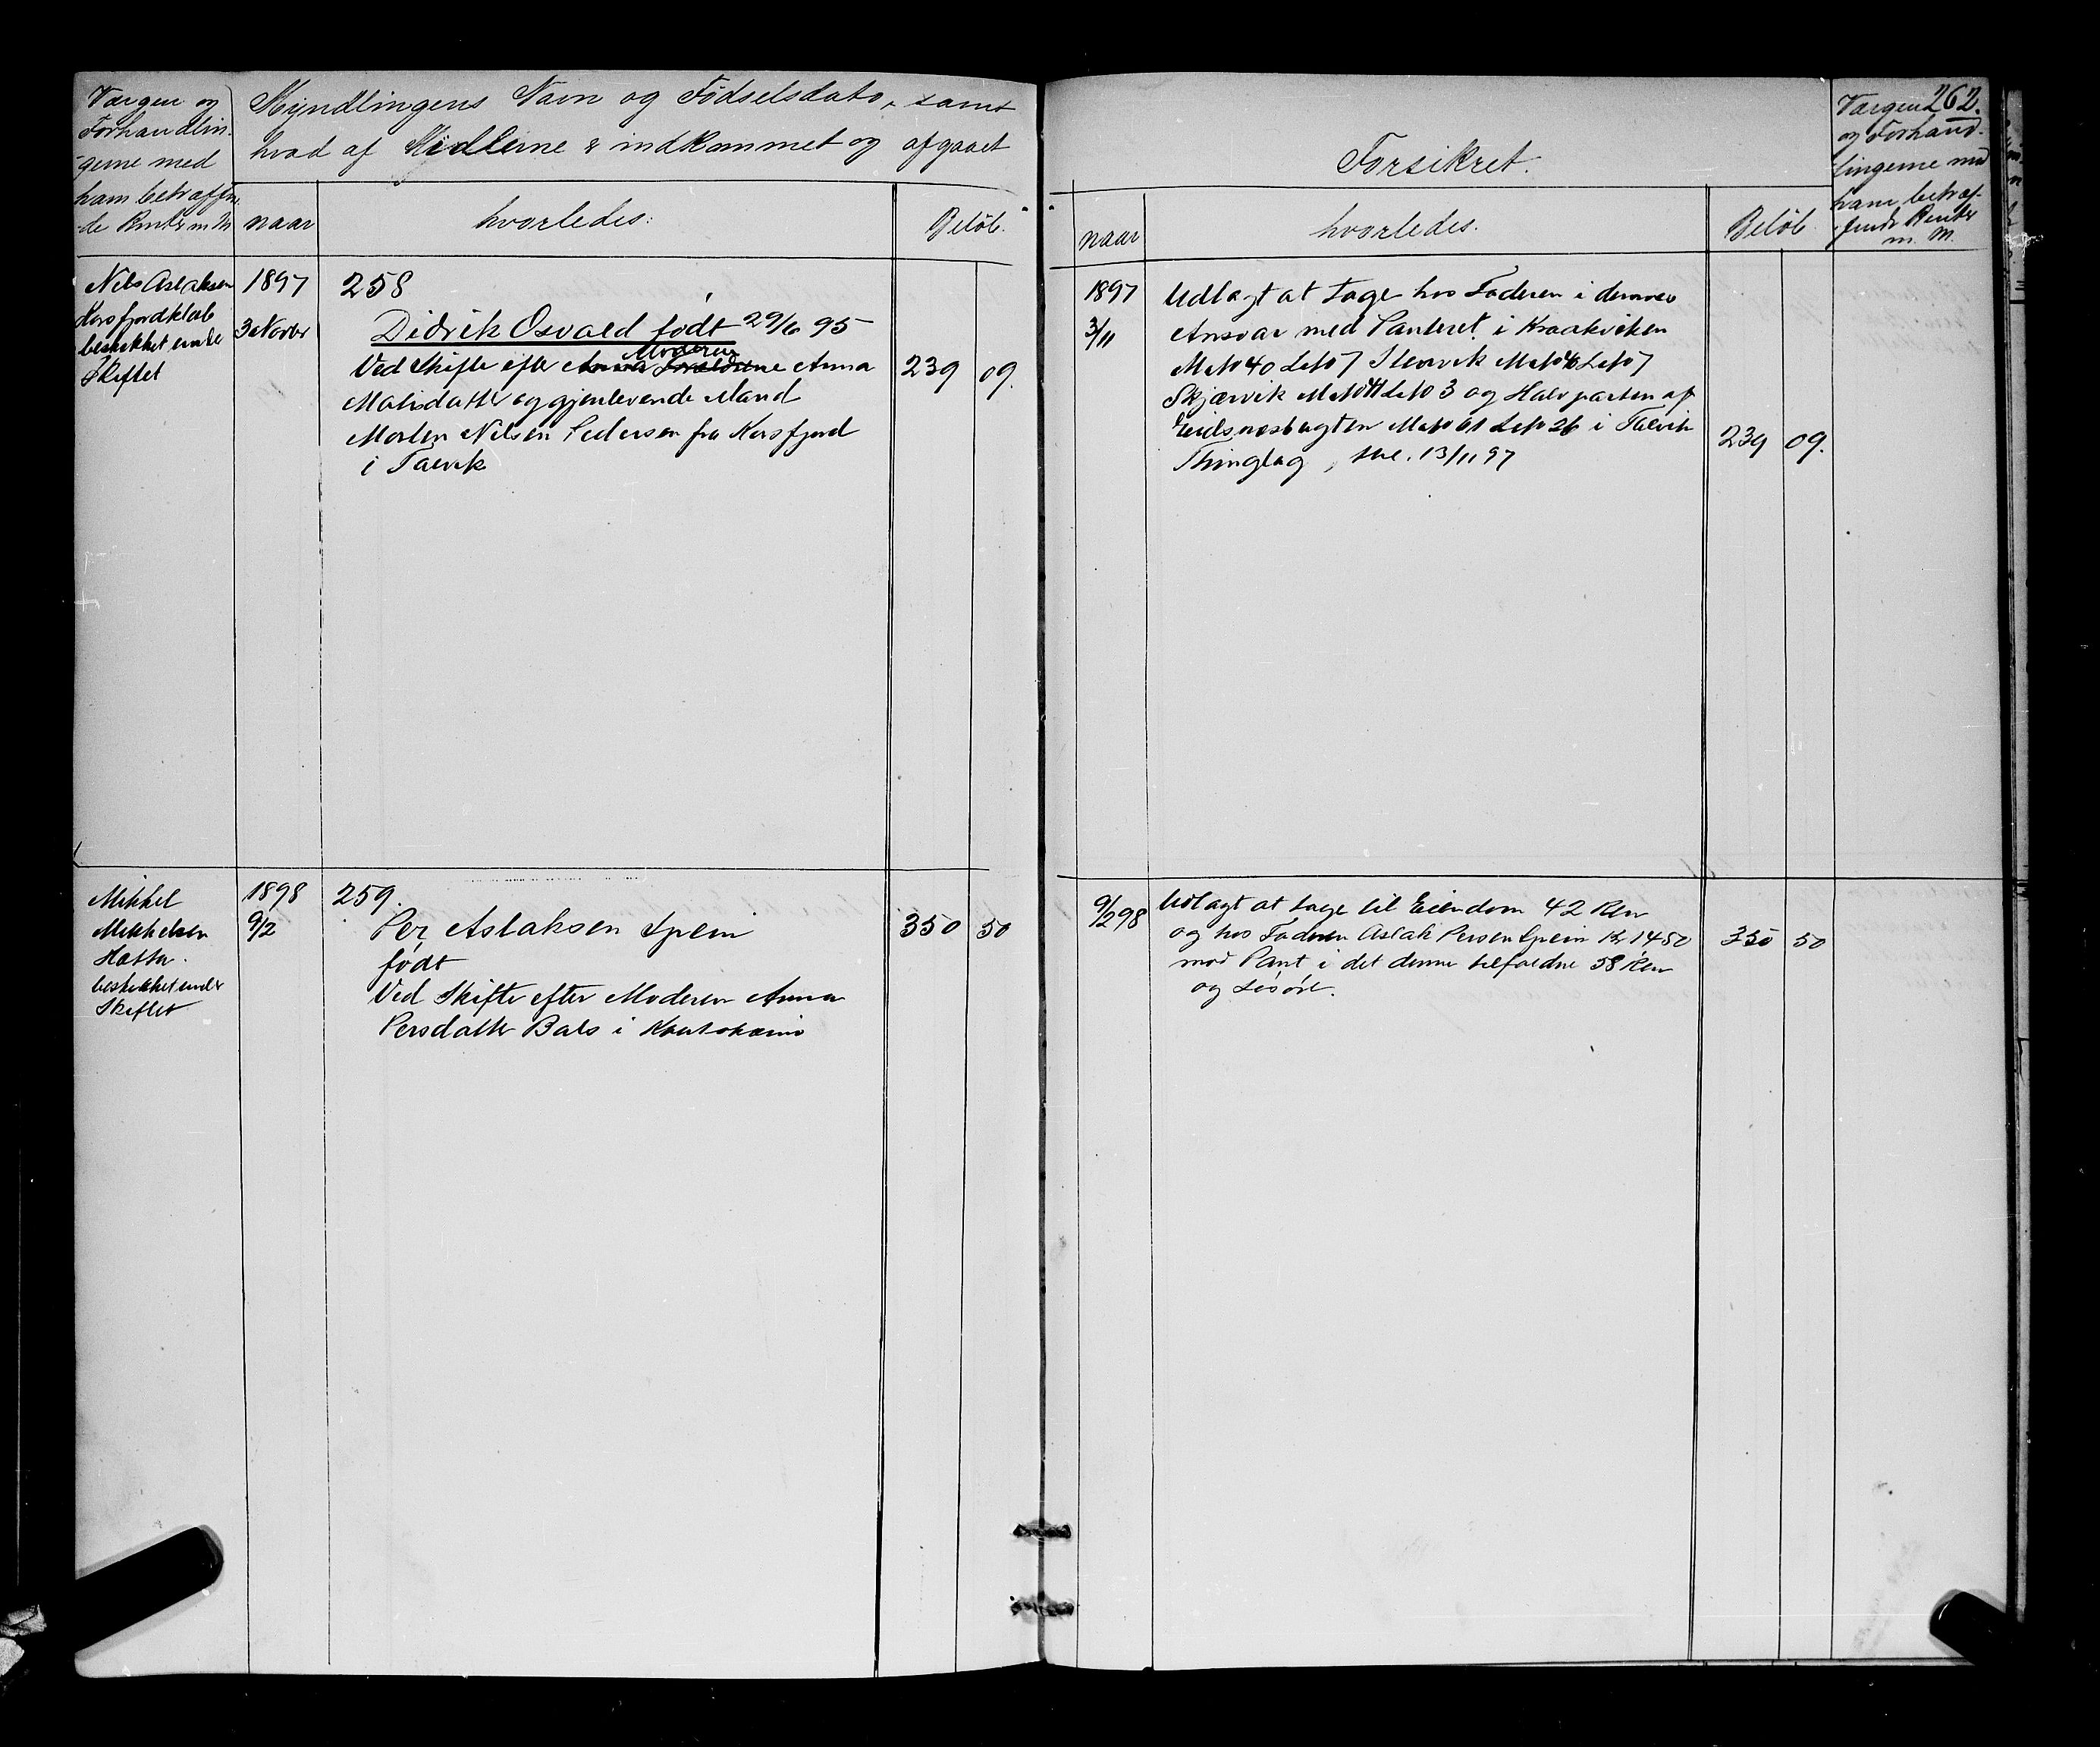 Værgen og
Forhandlin-
gerne med
ham betræffen-
de Renter m M
Myndlingens Navn og Fødselsdato, samt
hvad af Midlerne er indkommet og afgaaet
naar
hvorledes:
Beløb.
Nils Aslaksen
Korsfjord
beskikket under
Skiftet
1897
3 Novbr
258
Didrik Osvald født 29/6 95
Moderen
Ved Skifte efter Forældrene Anna
Matisdatter og gjenlevende Mand
Morten Nilsen Pedersen fra Korsfjord
i Talvik
239 09.
Mikkel
Mikkelsen
Hætta.
beskikket under
Skiftet
1898
9/2
259.
Per Aslaksen Spein
født
Ved Skifte efter Moderen Anna
Persdatter Bals i Kautokeino
350 50
262.
Forsikret.
Værgen
og Forhand-
lingerne med
ham betræf-
fende Renter
m. M.
naar
hvorledes.
Beløb
1897
3/11
Udlagt at tage hos Faderen i dennes
Ansvar med Panteret i Kraakviken
M No 40 L No 7 M No 40 L No 7
Skjærvik M No 41 L No 3 og Halvparten af
Eidsnesbugten M No 61 L No 26 i Talvik
Thinglag, 13/11 97
239 09.
9/2 98
Udlagt at tage til Eiendom 42 Ren
og hos Faderen Aslak Persen Spein Kr 14 50
mod Pant i det denne tilfaldne 58 Ren
og Løsøre.
350 50